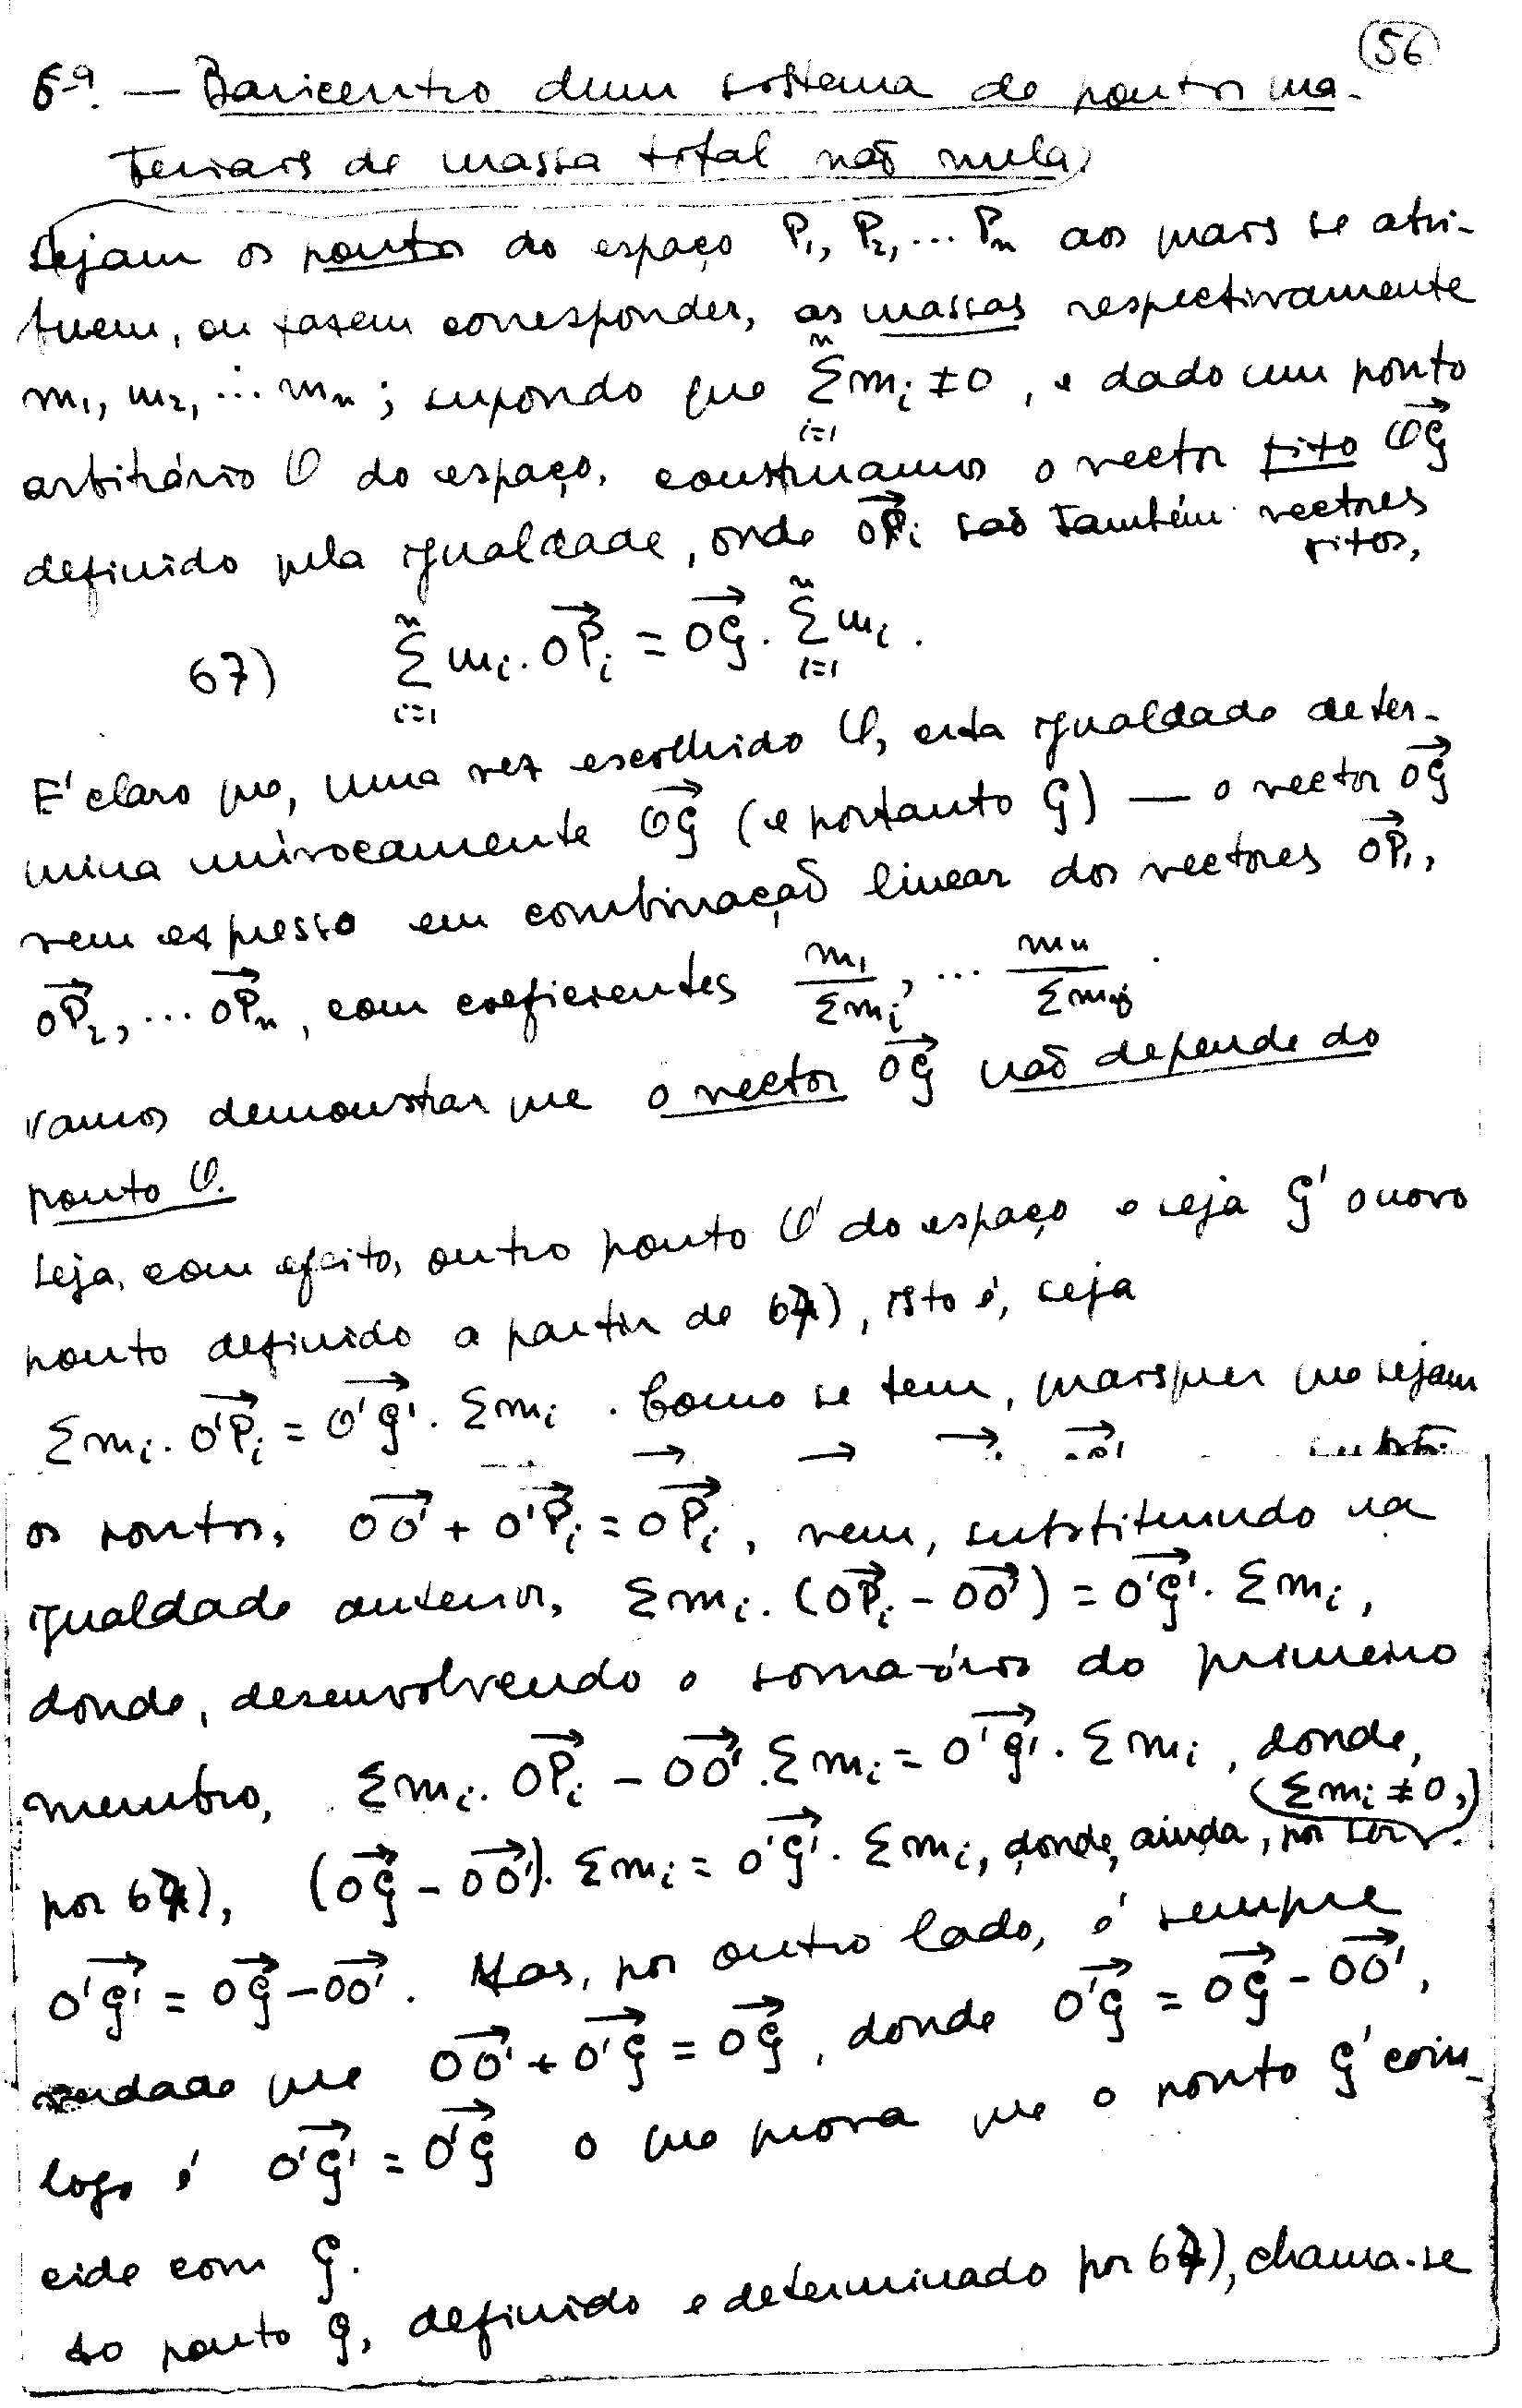 56
6ª. — Baricentro dum sistema de pontos ma-
teriais de massa total não nula.
Sejam os pontos do espaço P₁, P₂, ... Pₙ aos quais se atri-
buem, ou fazem corresponder, as massas respectivamente
m₁, m₂, ... mₙ ; supondo que $\sum_{i=1}^{n} m_i \neq 0$, e dado um ponto
arbitrário O do espaço, construamos o vector fixo $\vec{OG}$
definido pela igualdade, onde $\vec{OP_i}$ são também vectores
fixos,
67) $\sum_{i=1}^{n} m_i \cdot \vec{OP_i} = \vec{OG} \cdot \sum_{i=1}^{n} m_i$.
É claro que, uma vez escolhido O, esta igualdade deter-
mina univocamente $\vec{OG}$ (e portanto G) — o vector $\vec{OG}$
vem expresso em combinação linear dos vectores $\vec{OP_1}$,
$\vec{OP_2}$, ... $\vec{OP_n}$, com coeficientes $\frac{m_1}{\Sigma m_i}$, ... $\frac{m_n}{\Sigma m_i}$.
Vamos demonstrar que o vector $\vec{OG}$ não depende do
ponto O.
Seja, com efeito, outro ponto O' do espaço e seja G' o novo
ponto definido a partir de 67), isto é, seja
$\Sigma m_i \cdot \vec{O'P_i} = \vec{O'G'} \cdot \Sigma m_i$. Como se tem, quaisquer que sejam
os pontos, $\vec{OO'} + \vec{O'P_i} = \vec{OP_i}$, vem, substituindo na
igualdade anterior, $\Sigma m_i \cdot (\vec{OP_i} - \vec{OO'}) = \vec{O'G'} \cdot \Sigma m_i$,
donde, desenvolvendo o somatório do primeiro
membro, $\Sigma m_i \cdot \vec{OP_i} - \vec{OO'} \cdot \Sigma m_i = \vec{O'G'} \cdot \Sigma m_i$, donde,
por 67), $(\vec{OG} - \vec{OO'}) \cdot \Sigma m_i = \vec{O'G'} \cdot \Sigma m_i$, donde, ainda, por ser ($\Sigma m_i \neq 0$,)
$\vec{O'G'} = \vec{OG} - \vec{OO'}$. Mas, por outro lado, é sempre
verdade que $\vec{OO'} + \vec{O'G} = \vec{OG}$, donde $\vec{O'G} = \vec{OG} - \vec{OO'}$,
logo é $\vec{O'G'} = \vec{O'G}$ o que prova que o ponto G' coin-
cide com G.
Ao ponto G, definido e determinado por 67), chama-se